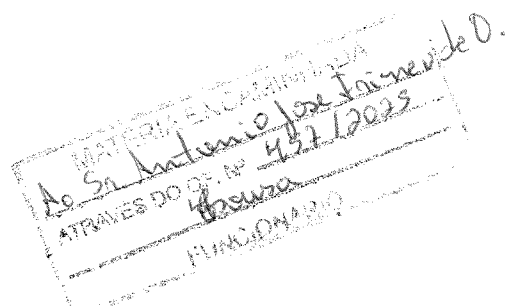 MATERIA ENCAMINHADA
Ao Sr Antonio Jose
ATRAVES DO OF. Nº 437/2023
FUNCIONARIO